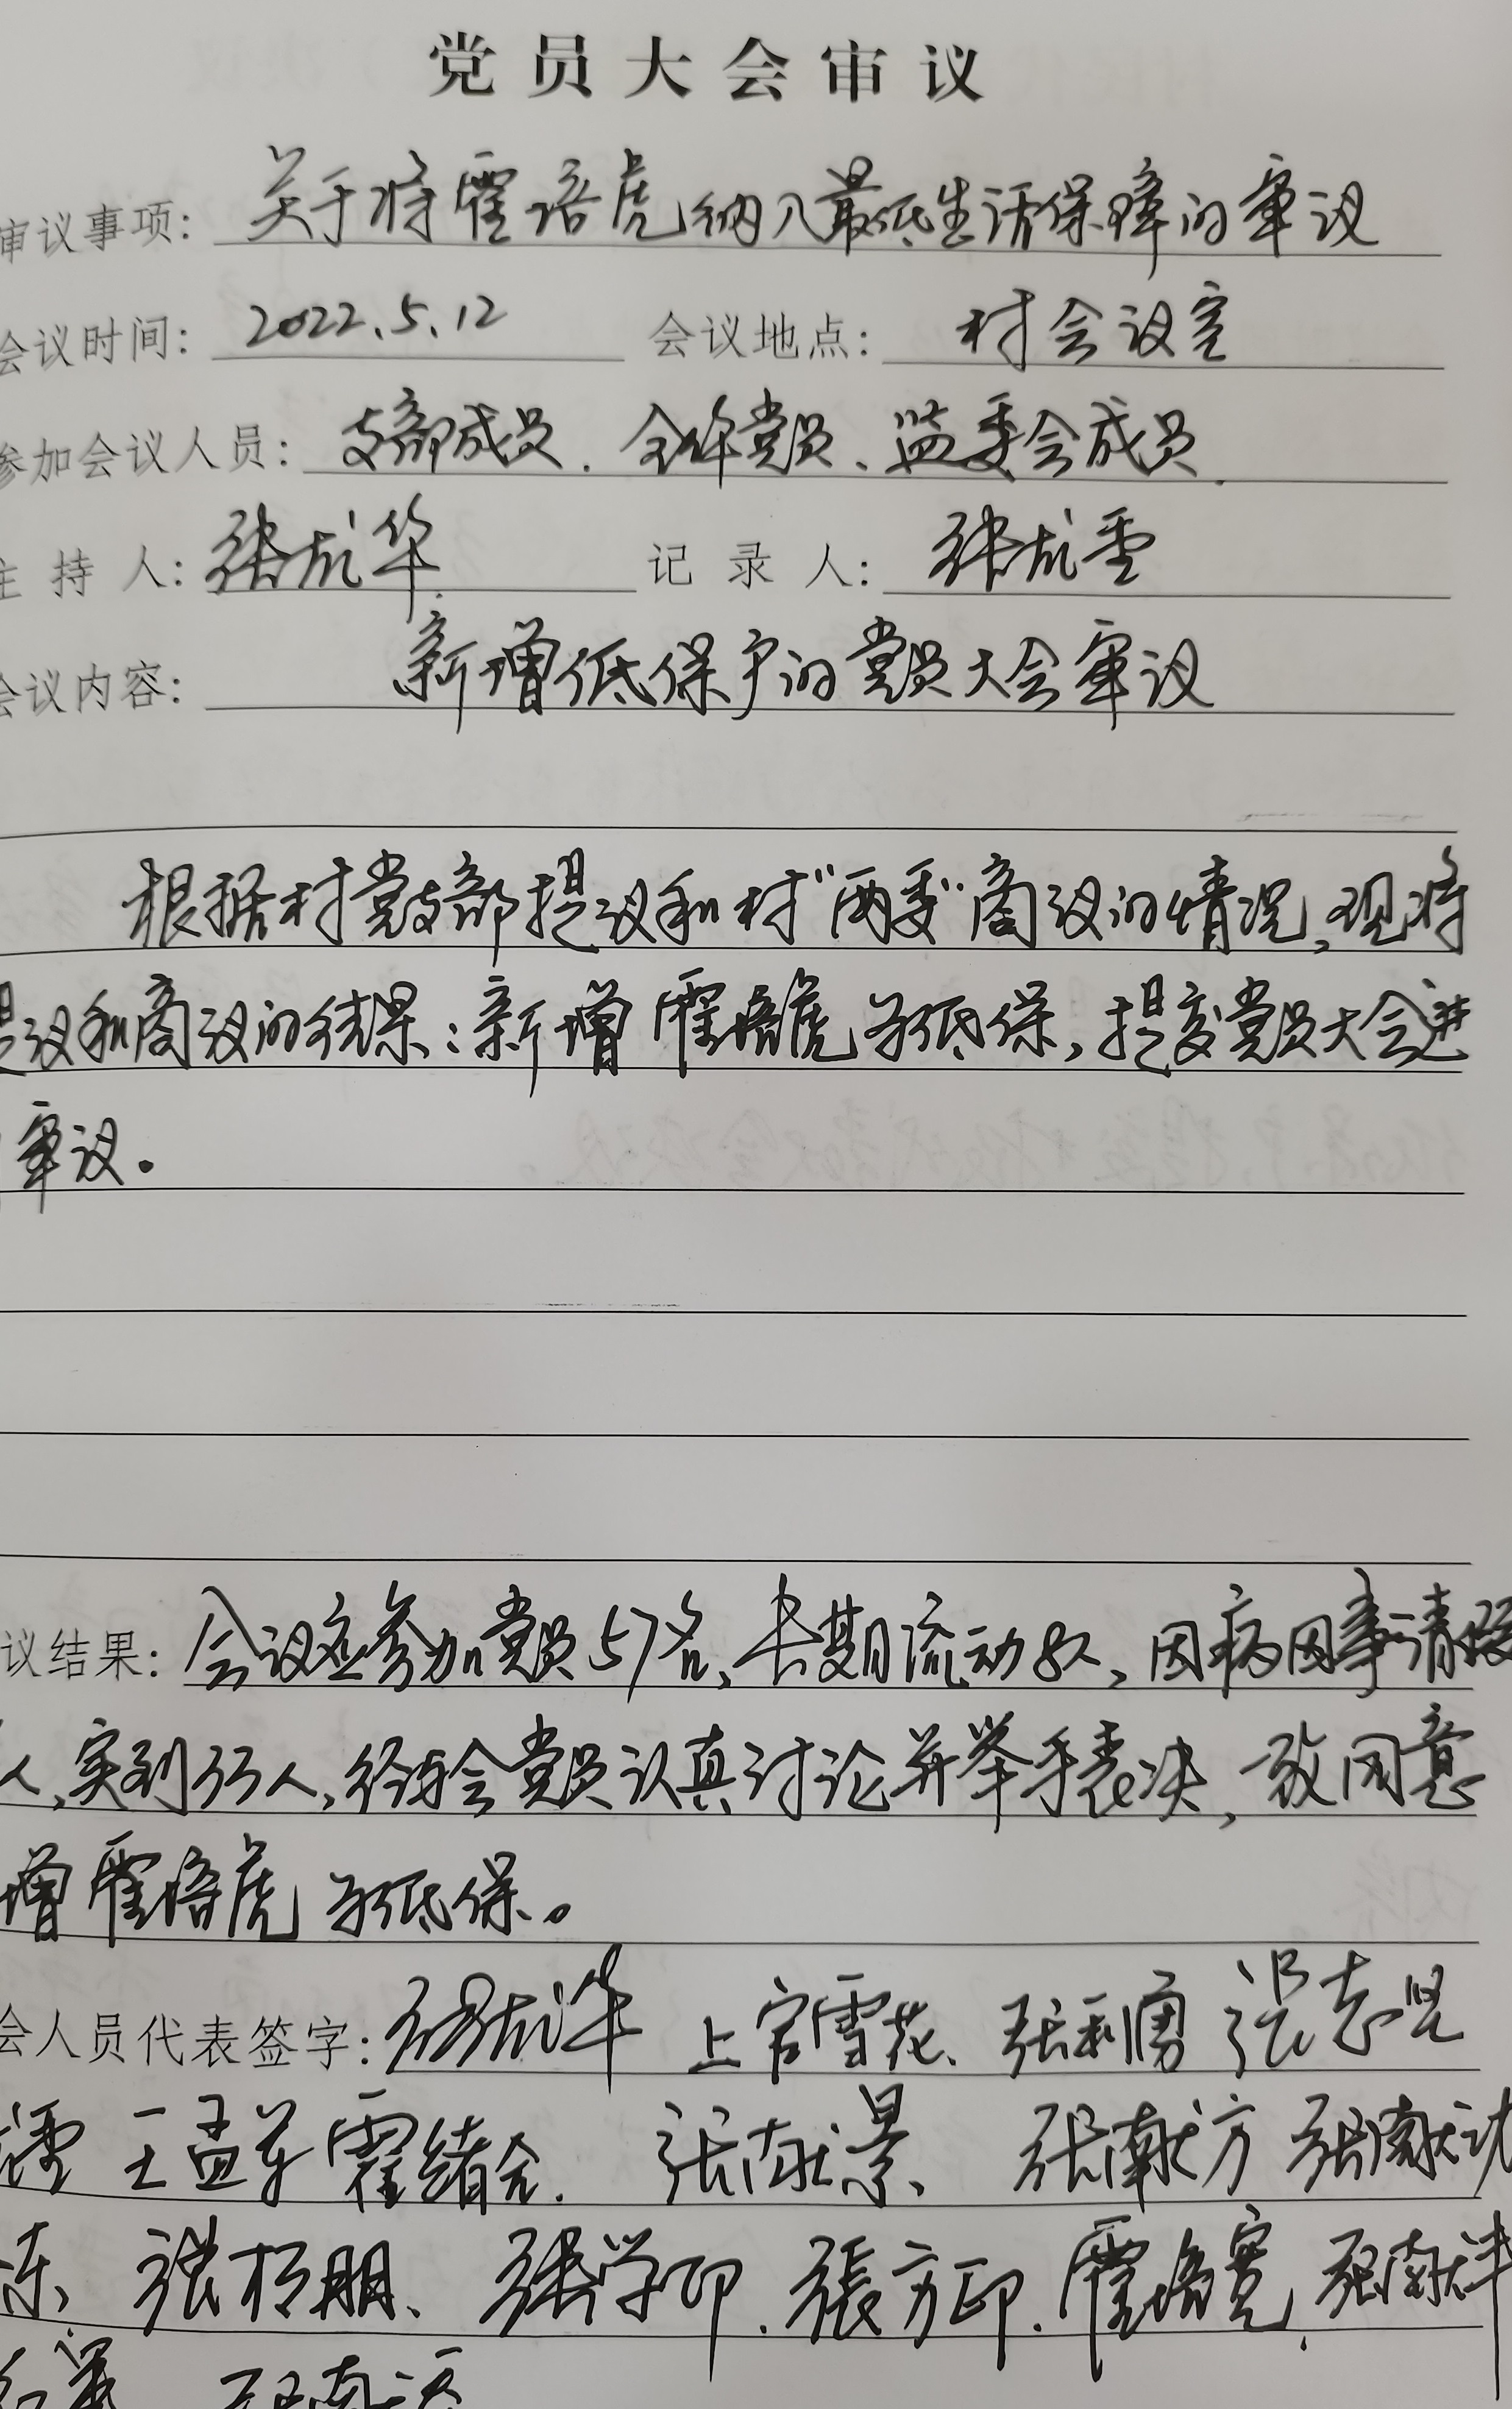 党员大会审议
审议事项: 关于将霍培虎纳入最低生活保障的审议
会议时间: 2022.5.12 会议地点: 村会议室
参加会议人员: 支部成员、全体党员、监委会成员.
主持人: 张龙华 记录人: 张龙
会议内容: 新增低保户的党员大会审议
根据村党支部提议和村"两委"商议的情况,现将
提议和商议的结果:新增霍培虎为低保,提交党员大会进
审议。
议结果: 会议应参加党员57名,长期流动8人,因病因事请假
人,实到35人,经与会党员认真讨论并举手表决,一致同意
增霍培虎为低保。
会人员代表签字: 张龙华 上官雪花、张利勇 张志坚
王孟军 霍绪全. 张献景、张献方 张献
东、张相朋、张学印.張方印.霍培宽.张献